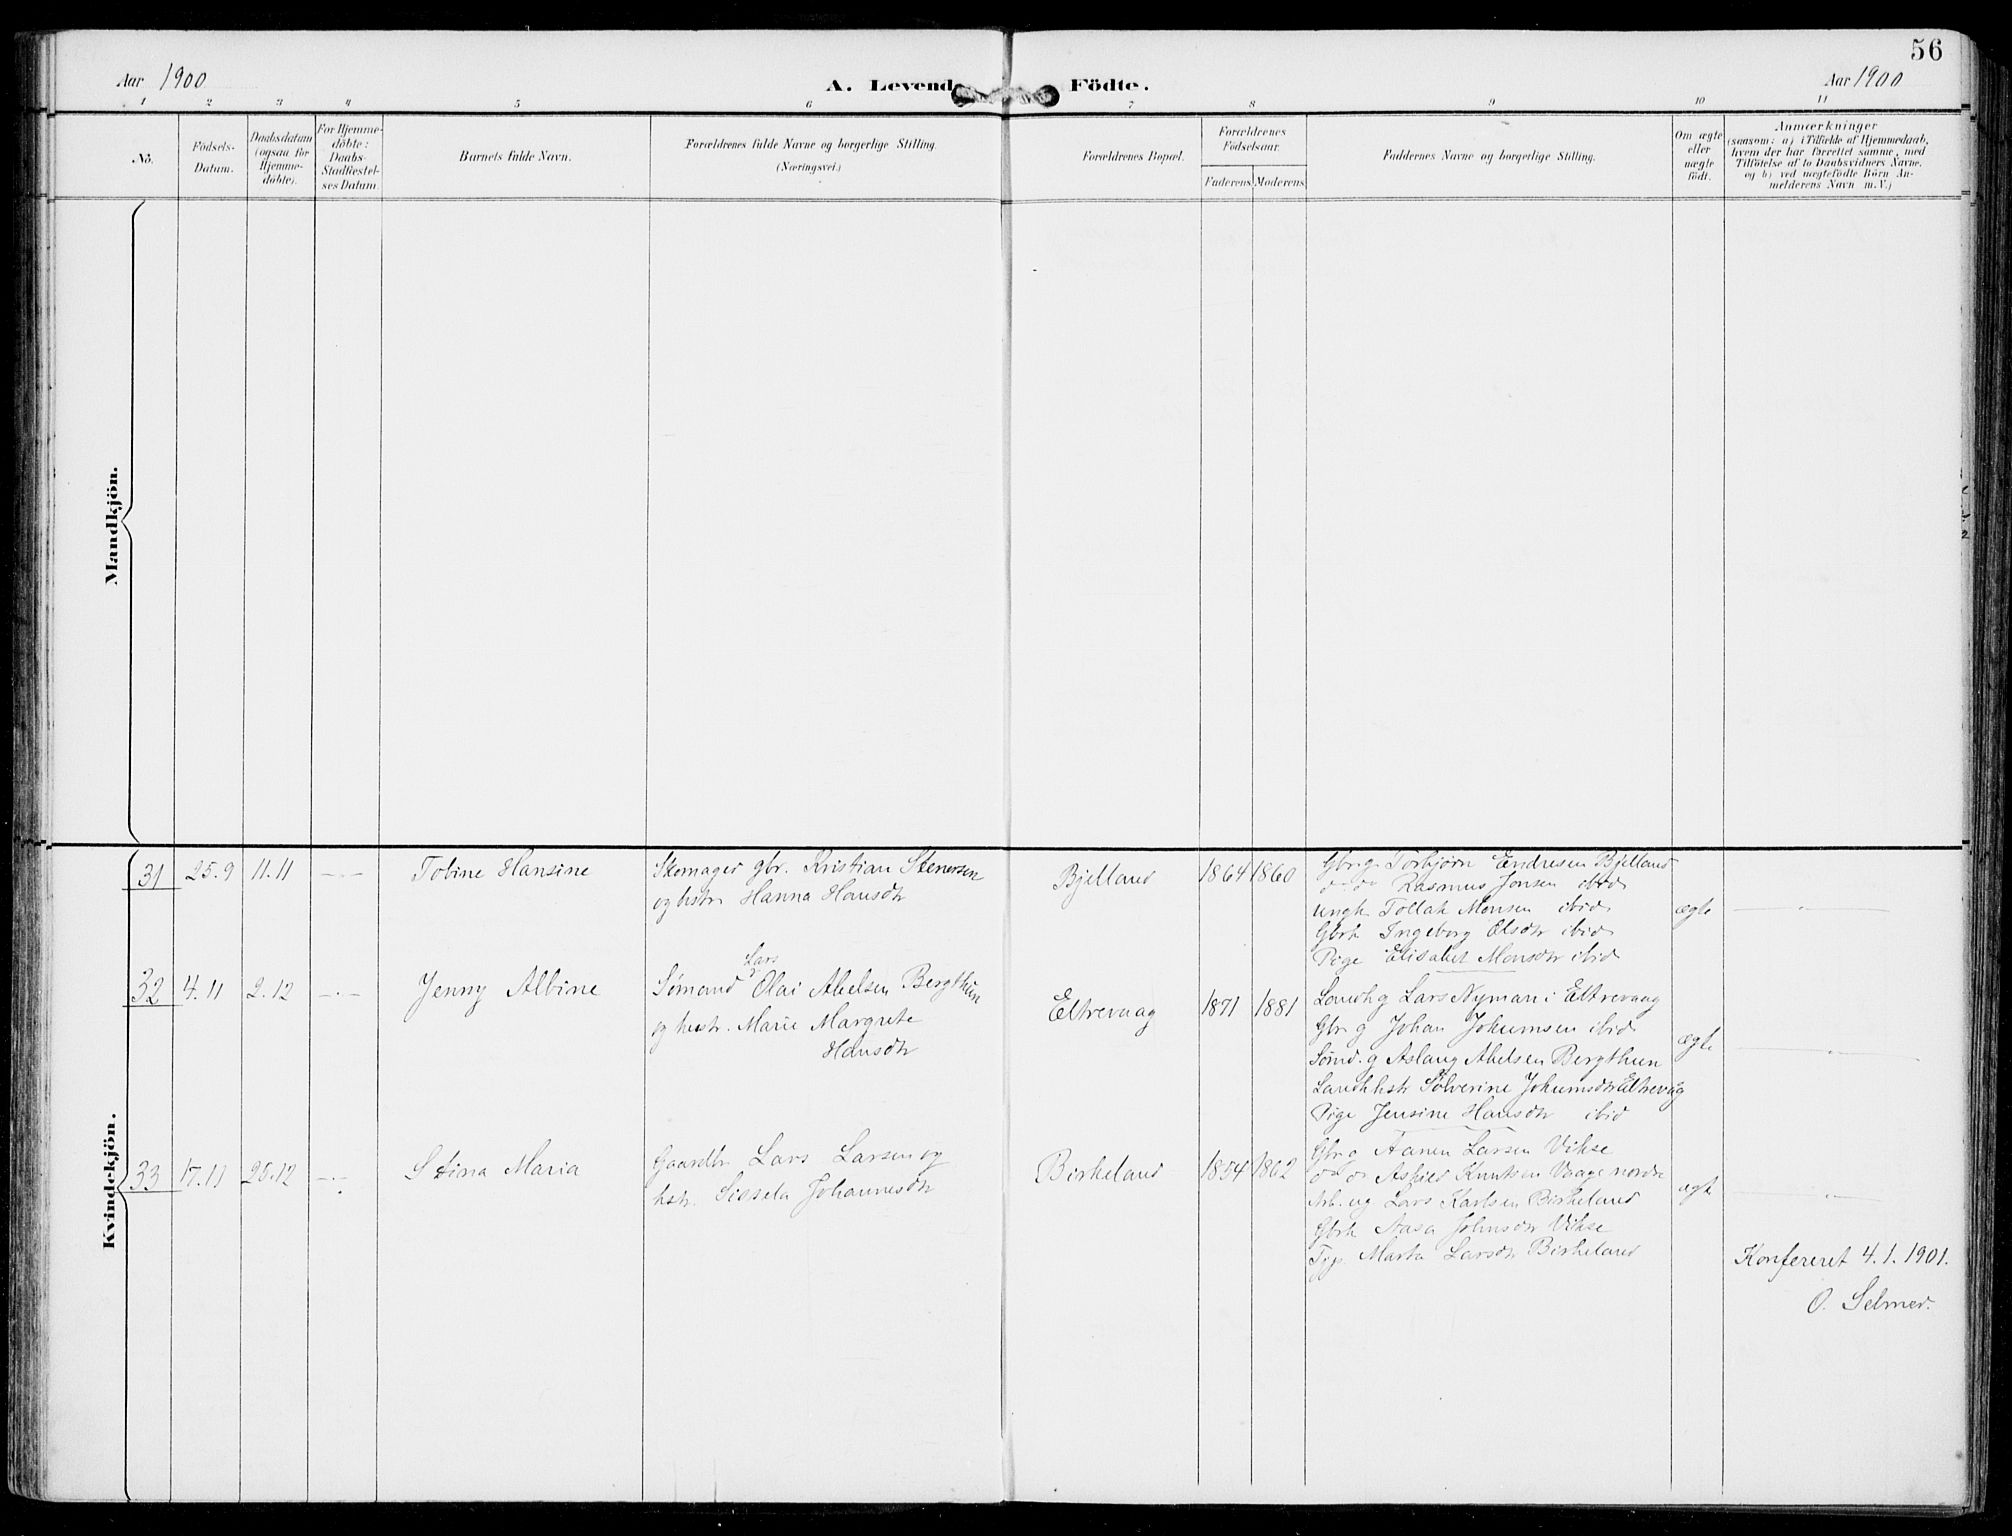 56
Aar 1900
A. Levend Födte.
Aar 1900
1 2 3 4 5 6 7 8 9 10 11
No.
Födsels-
Datum.
Daabsdatum
(ogsaa for
Hjemme-
döbte).
For Hjemme-
döbte:
Daabs-
Stadfæstel-
ses Datum.
Barnets fulde Navn.
Forældrenes fulde Navne og borgerlige Stilling.
(Næringsvei.)
Forældrenes Bopæl.
Forældrenes
Födselsaar.
Faderens
Moderens
Faddernes Navne og borgerlige Stilling.
Om ægte
eller
uægte
födt.
Anmærkninger
(saasom: a) i Tilfælde af Hjemmedaab,
hvem der har forrettet samme, med
Tilföielse af to Daabsvidners Navne,
og b) ved uægtefödte Börn An-
melderens Navn m. V.)
Mandkjön.
Kvindekjön.
31 25.9 11.11 — Tobine Hansine
Skomager gbr. Kristian Stenersen
og hstr Hanna Hansdtr
Bjelland 1864 1860
Gbr. g. Torbjørn Endresen Bjelland
do do Rasmus Jonsen ibid
Ungk. Tollak Monsen ibid
Gbrk Ingeborg Olsdtr ibid
Pige Elisabet Monsdtr ibid
ægte
32 4.11 2.12 — Jenny Albine
Lars
Sømand Olai Abelsen Bergthun
og hustr. Marie Margrete
Hansdtr
Eltrevaag 1871 1881
Landh g Lars Nyman i Eltrevaag
Gbr g Johan Johumsen ibid
Sømd. g Aslaug Abelsen Bergthun
Landhhstr Sølverine Johumsdtr Eltrevåg
Pige Jensine Hansdtr ibid
ægte
33 17.11 25.12 — Stina Maria
Gaardbr Lars Larsen og
hstr. Sissela Johannesdtr
Birkeland 1854 1862
Gbr g Aanen Larsen Vikse
do do Askild Knutsen Vaage nordre
Arb. ug Lars Karlsen Birkeland
Gbrk Aasa Johnsdtr Vikse
Tjp. Marta Larsdtr Birkeland
ægte
Konfereret 4.1.1901.
O. Selmer.